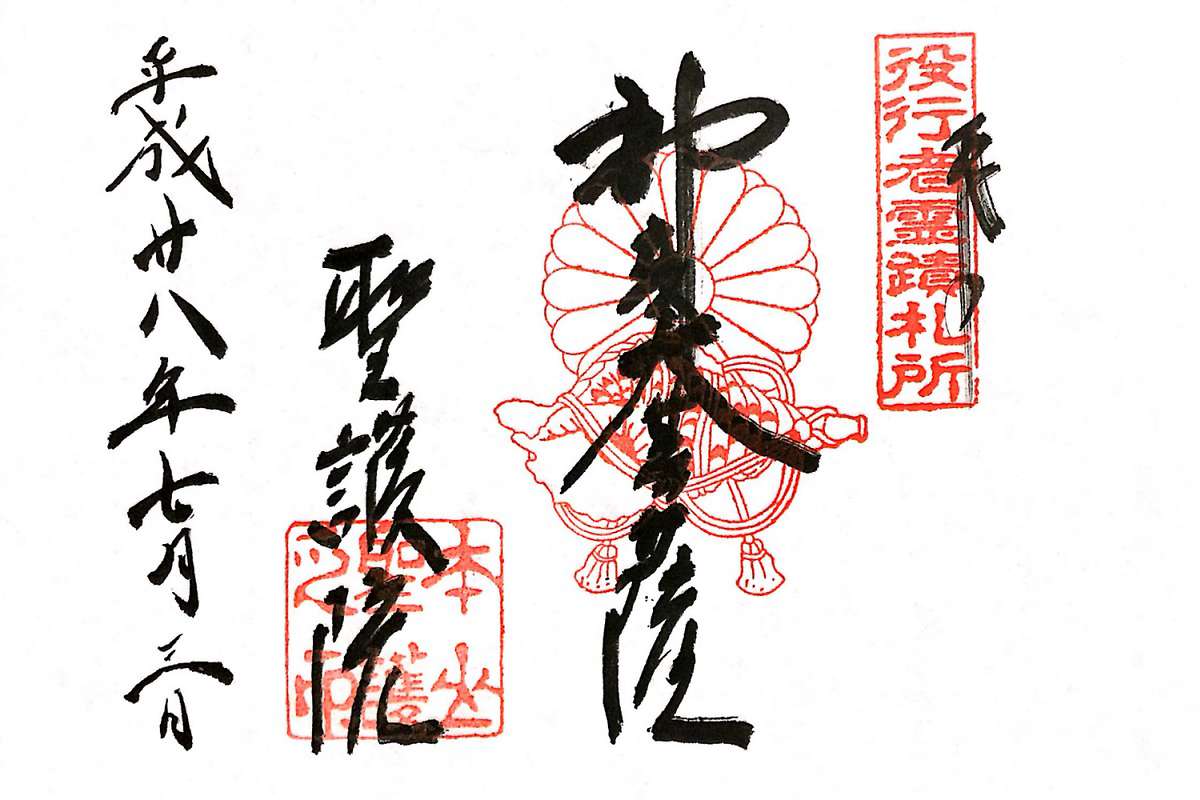 役行者靈蹟札所
奉拝
神変大菩薩
聖護院
本山
聖護
平成廿八年七月三日